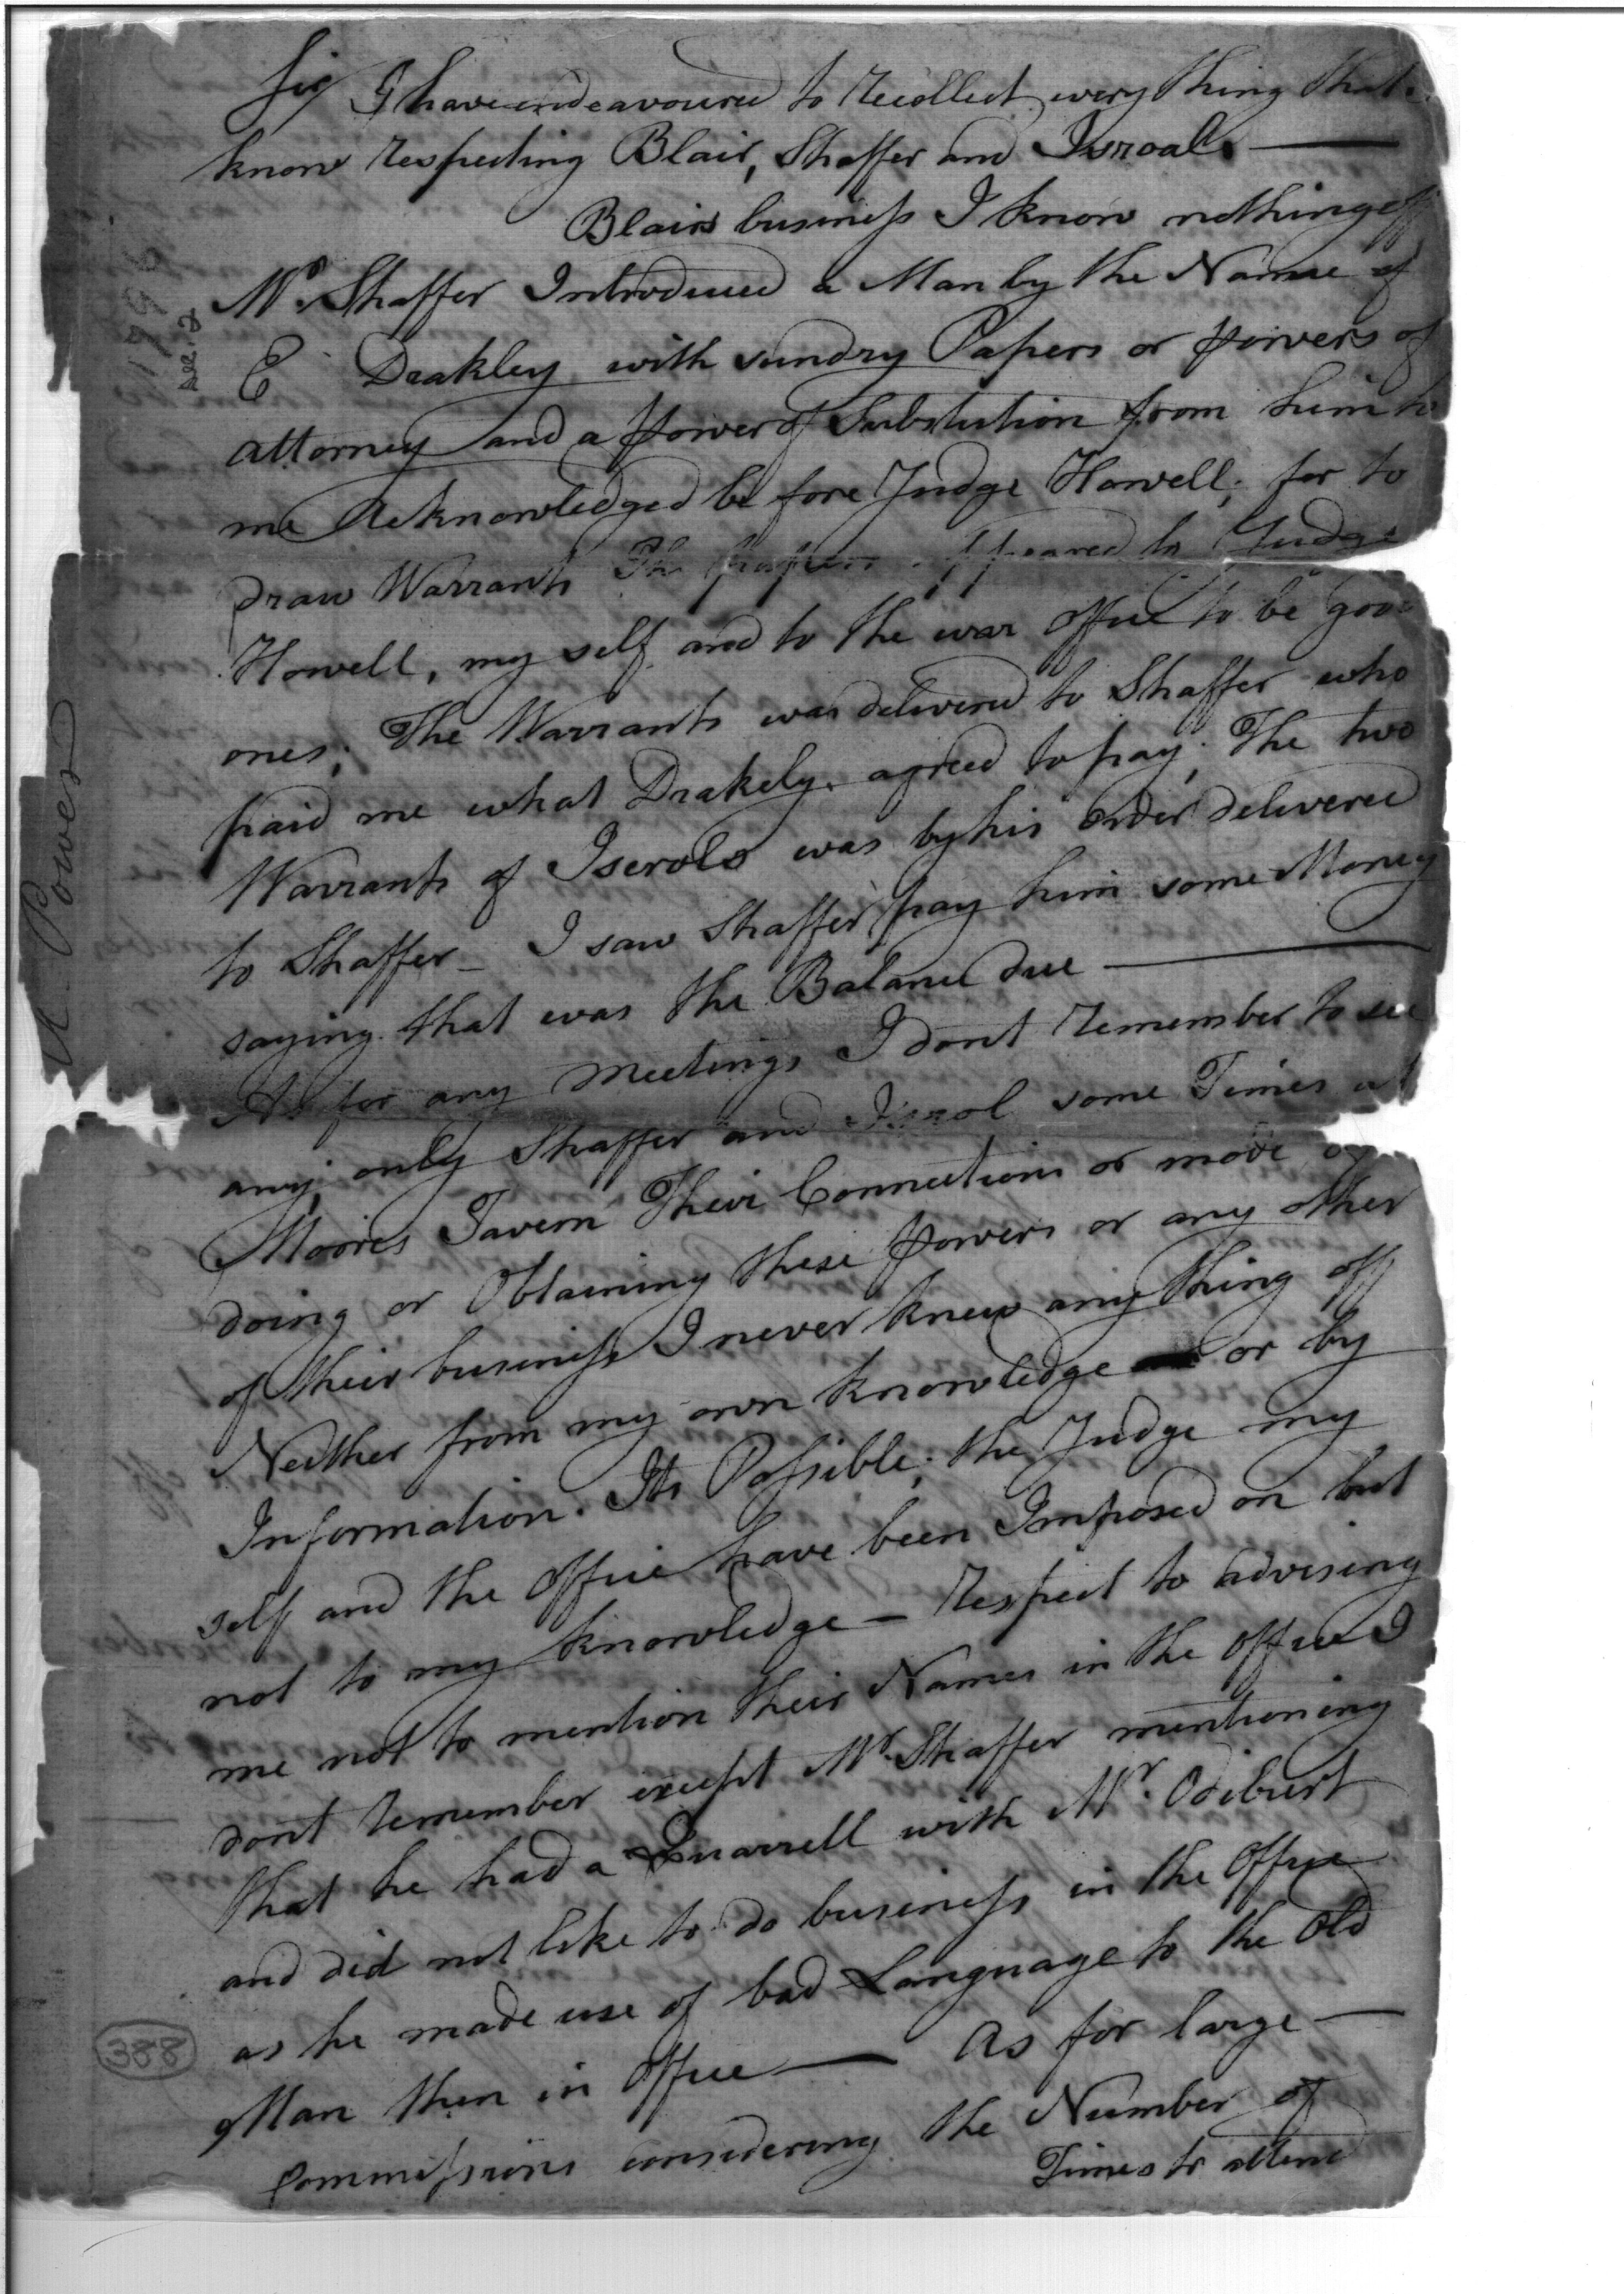 Sir I have endeavoured to recollect every thing that
know respecting Blair, Shaffer and Isroal
Blairs business I know nothing off
Mr. Shaffer Introduced a Man by the Name of
E Drakley with sundry Papers or powers of
attorney and a power of Substution from him to
me Acknowledged before Judge Howell; for to
Draw Warrants The papers appeared to Judge
Howell, my self and to the war office to be good
ones; The Warrants was delivered to Shaffer who
paid me what Drakely agreed to pay; The two
Warrants of Iserols was by his order delivered
to Shaffer - I saw Shaffer pay him some Money
saying that was the Balance due
As for any meetings I dont remember to see
any, only Shaffer and Isrol some Times at
Moores Tavern Their Connections or mode of
doing or Obtaining these powers or any other
of their business I never knew any thing off
Neither from my own knowledge or by
Information. Its Possible; the Judge my
self and the office have been Imposed on but
not to my knowledge - respect to advising
me not to mention their Names in the office I
dont remember except Mr. Shaffer mentioning
that he had a Quarrell with Mr. Odiburt
and did not like to do business in the office
as he made use of bad Language to the Old
Man then in office — as for large —
Commissions considering the Number of
Times to attend
Dec. 2
Powers
388